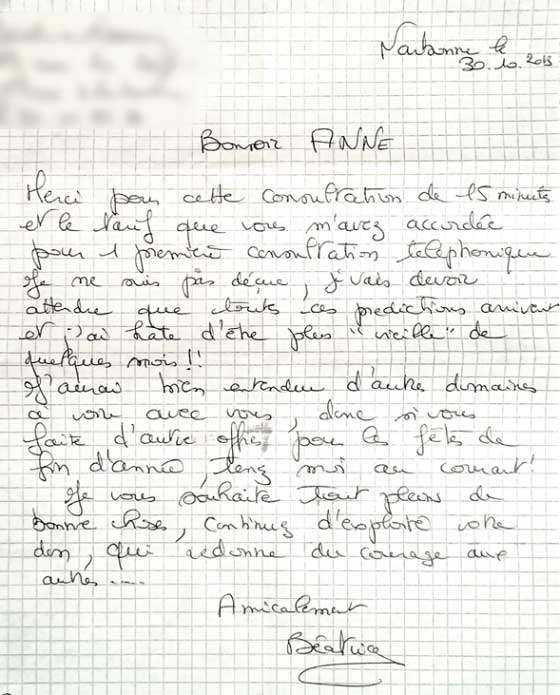 Narbonne le
30.10.2013
Bonsoir ANNE
Merci pour cette consultation de 15 minutes
et le tarif que vous m'avez accordée
pour 1 première consultation téléphonique
Je ne suis pas déçue, j'vais devoir
attendre que touts ces predictions arrivent
et j'ai hâte d'être plus "vieille" de
quelques mois!!
J'aurai bien entendu d'autres domaines
à voir avec vous, donc si vous
faite d'autre offres pour les fêtes de
fin d'année, tenez moi au courant!
Je vous souhaite tout pleins de
bonne chose, continuez d'exploité votre
don, qui redonne du courage aux
autres.....
Amicalement
Béatrice